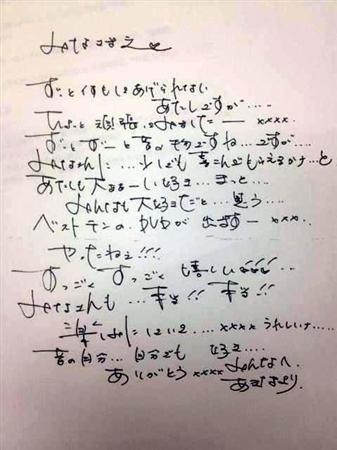 みなさまえ♥
ずーっと くすもしをあげられない
あたしですが....
ちょっと 頑張 みました ー xxxx
ずーと ずーと 昔の ですね...ですが....
みなさんに...少しでも 喜んでもらえるかナ...と
あたしも 大あるーい好き...きっと...
みんなも 大好きだと...思う....
ベストテンの.DVDが 出ますー xxx.
やったねぇ!!!
すっごく すっごく 嬉しい!!!
みなさんも...本当!! 本当!!
楽しみに .... xxxx うれしいナ....
昔の自分...自分でも 好き....
ありがとう xxxx みんなへ.
あきなより.